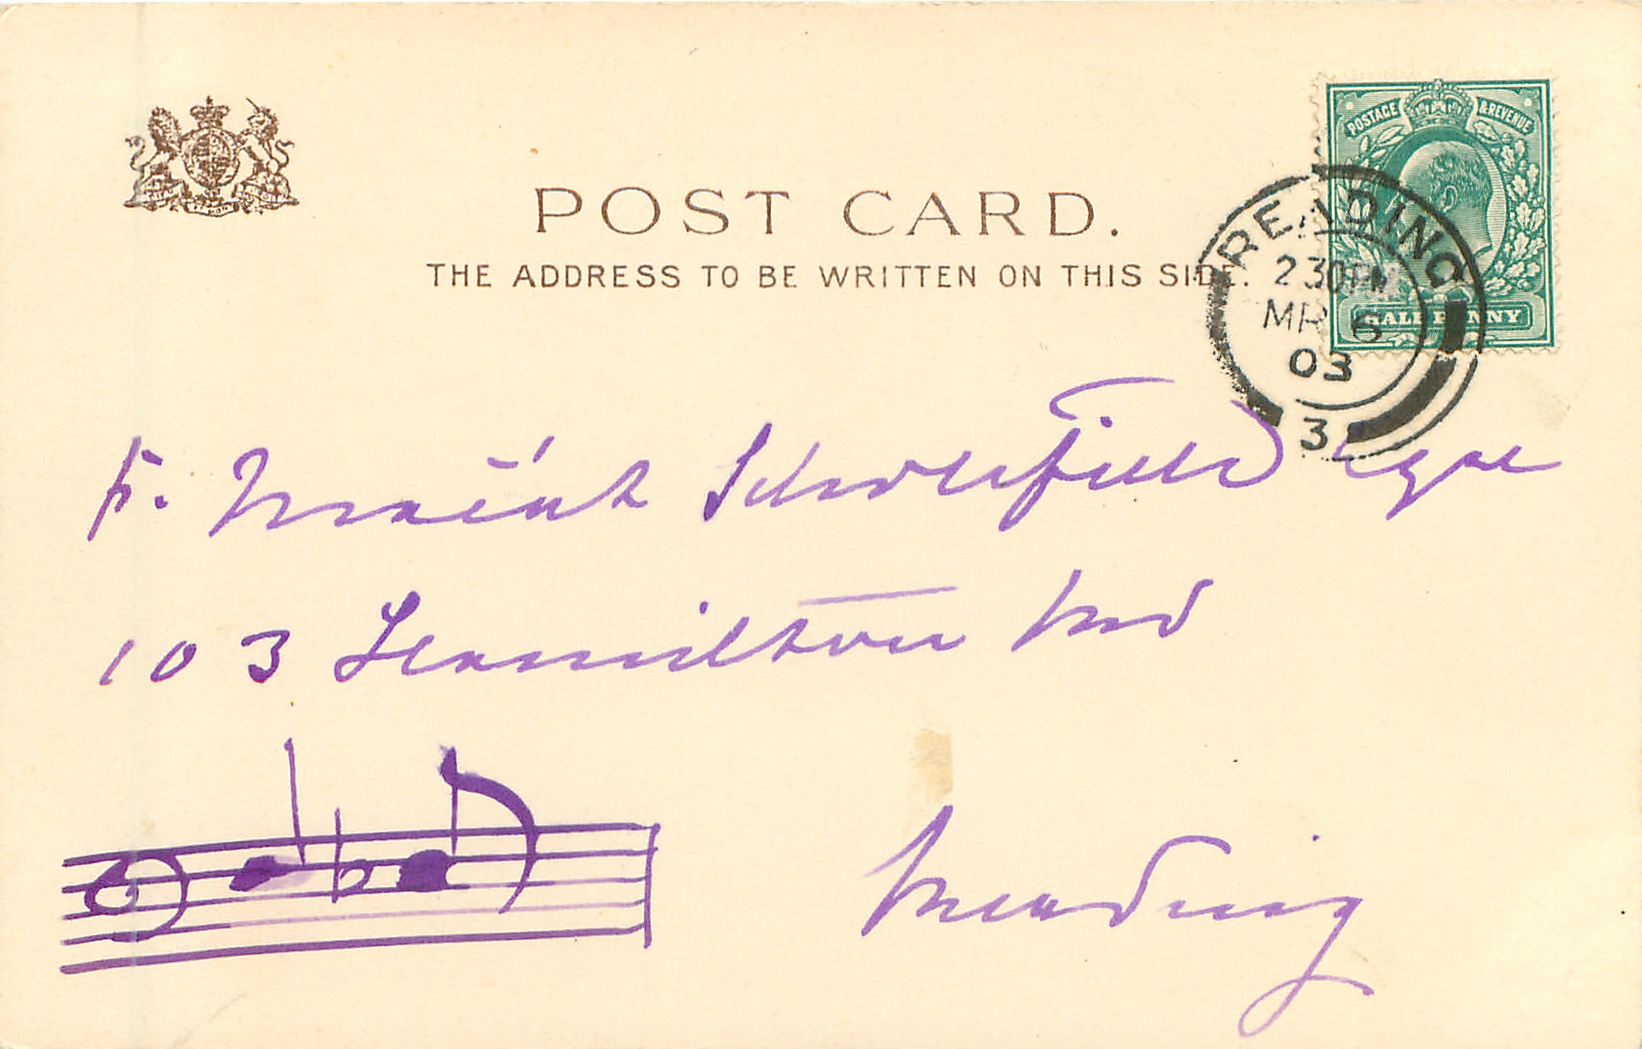 POSTAGE & REVENUE
HALF PENNY
POST CARD.
THE ADDRESS TO BE WRITTEN ON THIS SIDE.
READING
2 30 PM
MR 6
03
3
F. Scholefield Esqre
103 Hamilton Road
Reading